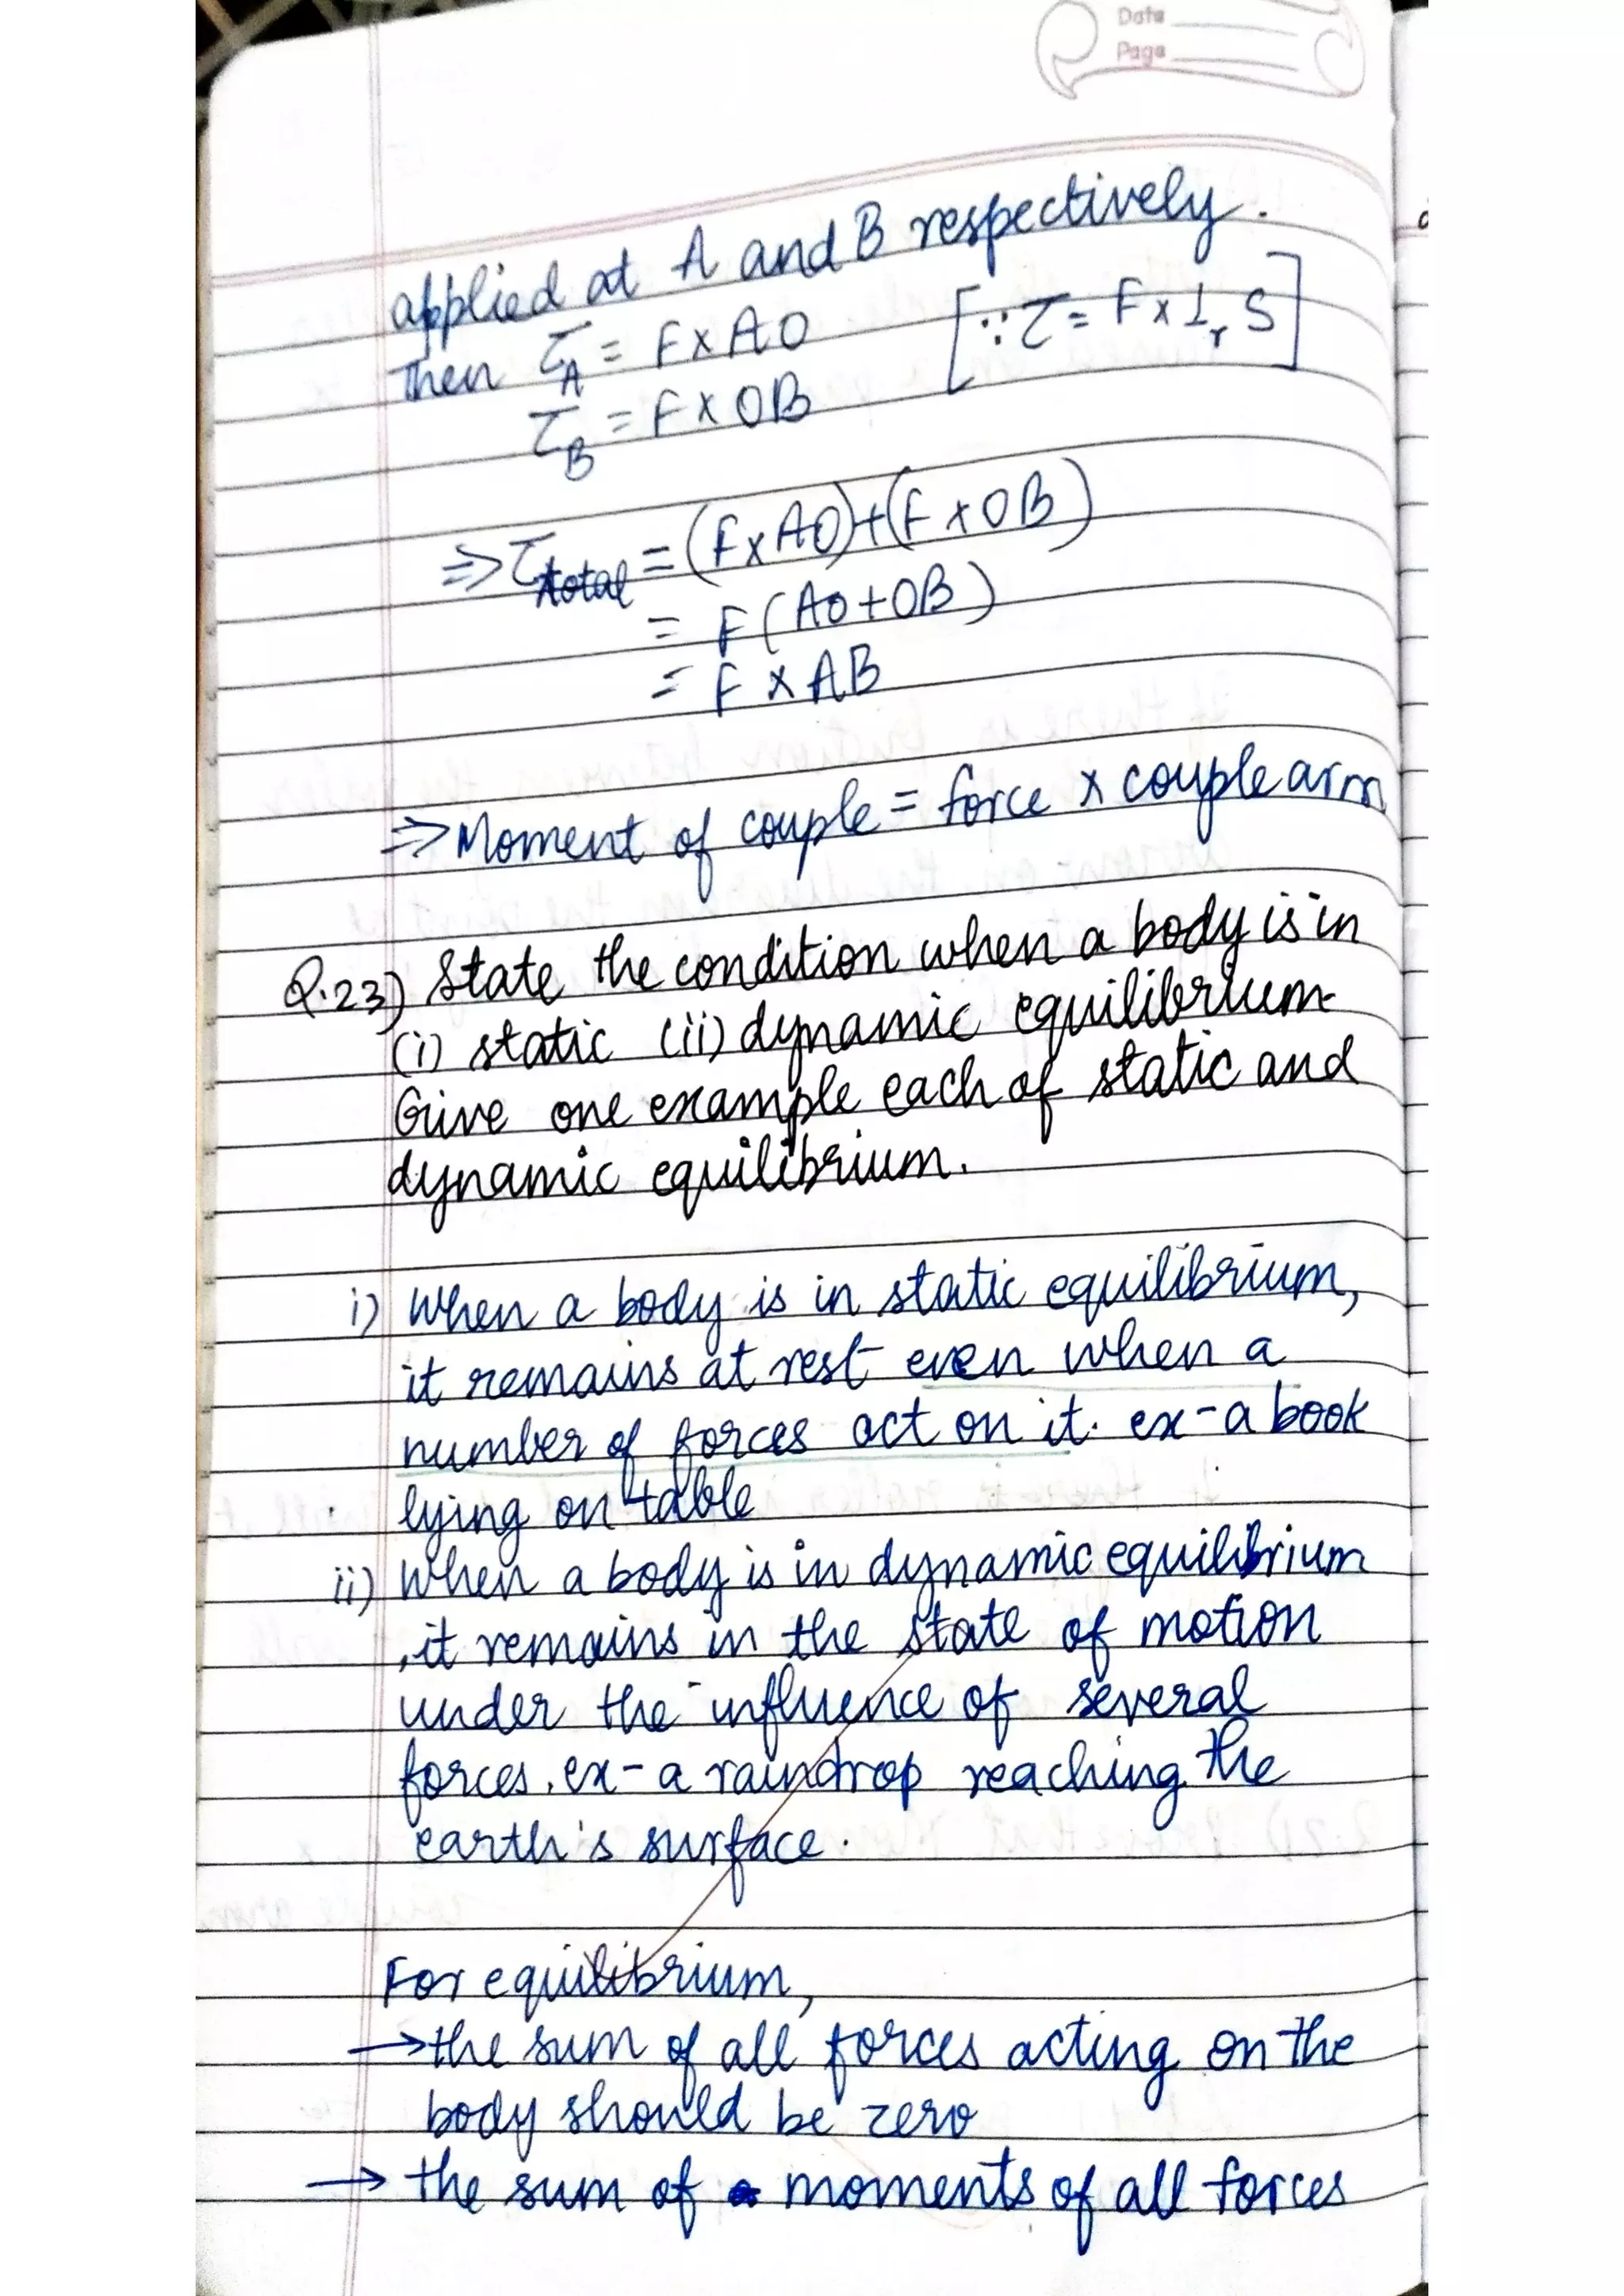 Date
Page
applied at A and B respectively.
Then τA = F x AO [∵ τ = F x ⊥r S]
τB = F x OB
⇒ τtotal = (F x AO) + (F x OB)
= F (AO + OB)
= F x AB
⇒ Moment of couple = force x couple arm
Q.23) State the condition when a body is in
(i) static (ii) dynamic equilibrium.
Give one example each of static and
dynamic equilibrium.
i) When a body is in static equilibrium,
it remains at rest even when a
number of forces act on it. ex - a book
lying on table
ii) When a body is in dynamic equilibrium
, it remains in the state of motion
under the influence of several
forces. ex - a raindrop reaching the
earth's surface.
For equilibrium,
→ the sum of all forces acting on the
body should be zero
→ the sum of moments of all forces